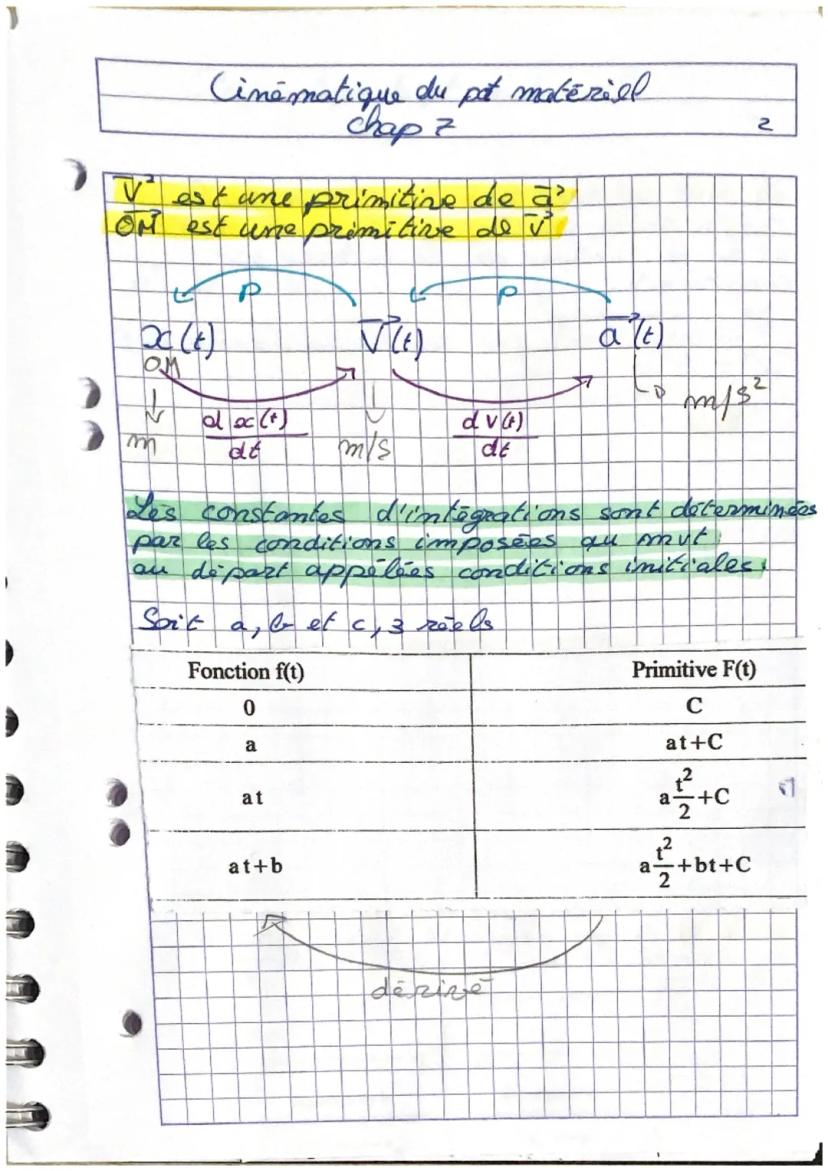 Cinématique du pt matériel
chap 7
2
V⃗ est une primitive de a⃗
OM⃗ est une primitive de v⃗
P P
x(t) V⃗(t) a⃗(t)
OM
m/s²
d x(t) d v(t)
m dt m/s dt
Les constantes d'intégrations sont déterminées
par les conditions imposées au mvt
au départ appélées conditions initiales.
Soit a, b et c, 3 réels
Fonction f(t) Primitive F(t)
0 C
a at+C
at a t²/2 +C
at+b a t²/2 +bt+C
dérivé